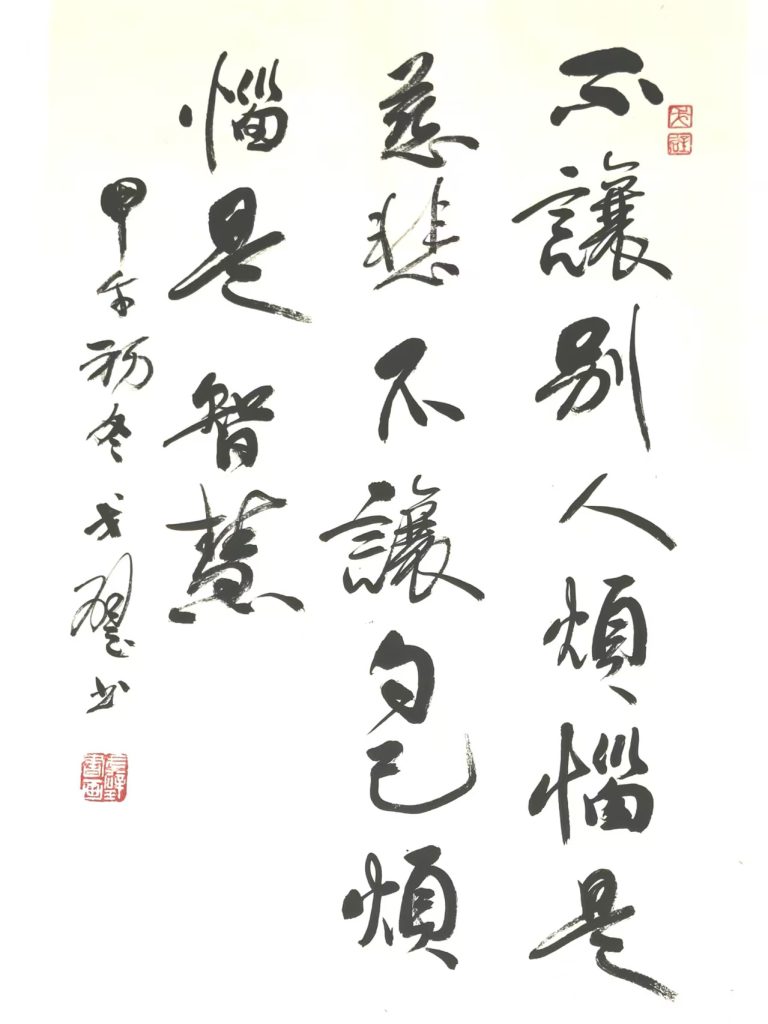 不讓別人煩惱是
慈悲不讓自己煩
惱是智慧
甲午初冬戈璧书